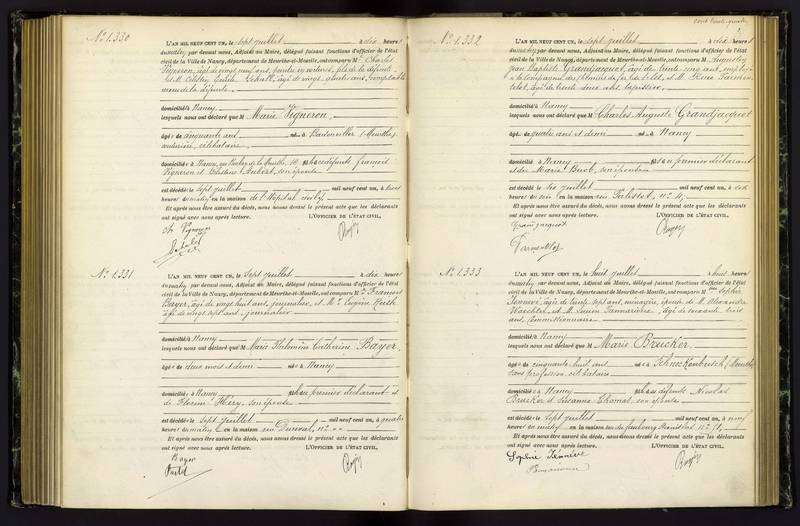 N° 1.330
L'AN MIL NEUF CENT UN, le sept juillet à dix heures
du matin par devant nous, Adjoint au Maire, délégué faisant fonctions d'officier de l'état
civil de la Ville de Nancy, département de Meurthe-et-Moselle, ont comparu M Charles
Vigneron, âgé de vingt neuf ans, fils de la défunte
et M. Schall, âgé de vingt quatre ans, comptable
neveu de la défunte
domiciliés à Nancy
lesquels nous ont déclaré que M Marie Vigneron
âgée de cinquante ans née à Badonviller (Meurthe)
couturière, célibataire
domiciliée à Nancy, fille de défunts François
Vigneron et Aubert, son épouse
est décédée le sept juillet mil neuf cent un, à
heures du matin en la maison de l'hôpital civil
Et après nous être assuré du décès, nous avons dressé le présent acte que les déclarants
ont signé avec nous après lecture. L'OFFICIER DE L'ÉTAT CIVIL,
Ch Vigneron
N° 1.331
L'AN MIL NEUF CENT UN, le sept juillet à dix heures
du matin par devant nous, Adjoint au Maire, délégué faisant fonctions d'officier de l'état
civil de la Ville de Nancy, département de Meurthe-et-Moselle, ont comparu M François
Bayer, âgé de vingt huit ans, journalier et M. Eugène
âgé de vingt sept ans, journalier
domiciliés à Nancy
lesquels nous ont déclaré que M Marie Philomène Catherine Bayer
âgée de deux mois et demi née à Nancy
domiciliée à Nancy fille du premier déclarant et
de Florine Fléry, son épouse
est décédée le sept juillet mil neuf cent un, à quatre
heures du matin en la maison rue Durival, n°
Et après nous être assuré du décès, nous avons dressé le présent acte que les déclarants
ont signé avec nous après lecture. L'OFFICIER DE L'ÉTAT CIVIL,
Bayer
N° 1.332
L'AN MIL NEUF CENT UN, le sept juillet à dix heures
du matin par devant nous, Adjoint au Maire, délégué faisant fonctions d'officier de l'état
civil de la Ville de Nancy, département de Meurthe-et-Moselle, ont comparu M Augustin
Jean Baptiste Grandjacquot, âgé de trente cinq ans, employé
à la Compagnie des Chemins de fer de l'Est, et M. René Parmen
âgé de trente deux ans
domiciliés à Nancy
lesquels nous ont déclaré que M Charles Auguste Grandjacquot
âgé de quatre ans et demi né à Nancy
domicilié à Nancy fils du premier déclarant
et de Marie Buob, son épouse
est décédé le six juillet mil neuf cent un, à six
heures du soir en la maison rue Palissot, n° 4
Et après nous être assuré du décès, nous avons dressé le présent acte que les déclarants
ont signé avec nous après lecture. L'OFFICIER DE L'ÉTAT CIVIL,
Grandjacquot
N° 1.333
L'AN MIL NEUF CENT UN, le huit juillet à huit heures
du matin par devant nous, Adjoint au Maire, délégué faisant fonctions d'officier de l'état
civil de la Ville de Nancy, département de Meurthe-et-Moselle, ont comparu M Sophie
Jennevé, âgée de trente sept ans, ménagère, épouse de M. Alexandre
Waechter, et M. Lucien âgé de soixante trois
ans, commissionnaire
domiciliés à Nancy
lesquels nous ont déclaré que M Marie Brucker
âgée de cinquante huit ans née à (Meurthe)
sans profession, célibataire
domiciliée à Nancy fille de défunts Nicolas
Brucker et Susanne Thomas, son épouse
est décédée le sept juillet mil neuf cent un, à neuf
heures du matin en la maison rue du faubourg Stanislas n° 71
Et après nous être assuré du décès, nous avons dressé le présent acte que les déclarants
ont signé avec nous après lecture. L'OFFICIER DE L'ÉTAT CIVIL,
Sophie Jennevé